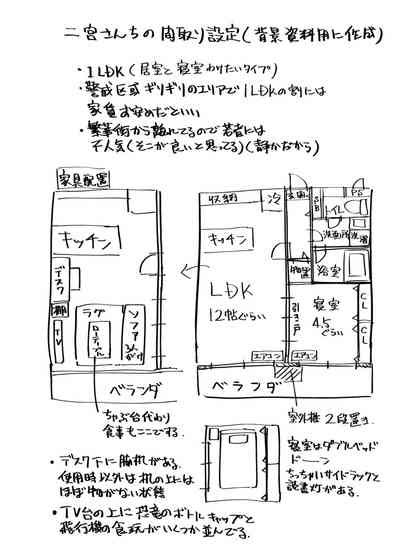 二宮さんちの間取り設定(背景資料用に作成)
・1LDK(居室と寝室わけたいタイプ)
・警戒区域ギリギリのエリアで1LDKの割には
家賃お安めだといい
・繁華街から離れてるので若者には
不人気(そこが良いと思ってる)(静かなから)
家具配置
キッチン
デスク
棚
TV
ラグ
ローテーブル
ソファ
ベランダ
ちゃぶ台代わり
食事もここでする.
収納
冷
玄関
PS
トイレ
洗面所
洗濯
キッチン
物置
浴室
LDK
12帖ぐらい
引き戸
寝室
4.5
ぐらい
CL
CL
エアコン
エアコン
ベランダ
室外機 2段置き
寝室はダブルベッド
ドーン
ちっちゃいサイドラックと
読書灯がある.
・デスク下に脇机がある.
使用時以外は机の上には
ほぼ物がない状態
・TV台の上に恐竜のボトルキャップと
飛行機の食玩がいくつか並んでる.